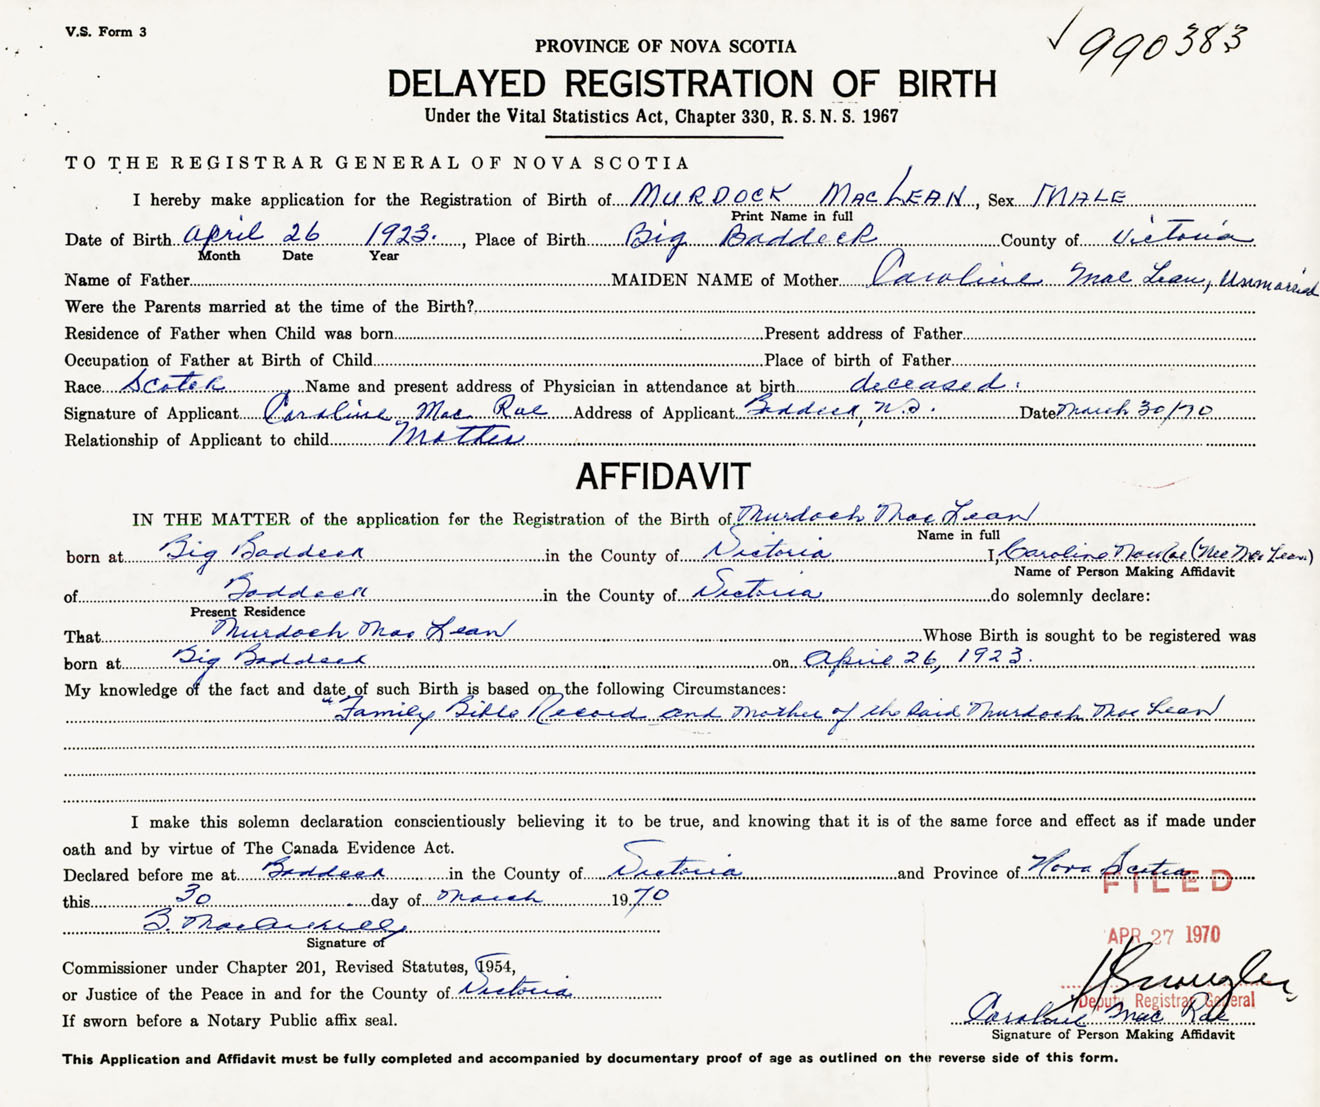 V.S. Form 3
990383
PROVINCE OF NOVA SCOTIA
DELAYED REGISTRATION OF BIRTH
Under the Vital Statistics Act, Chapter 330, R. S. N. S. 1967
TO THE REGISTRAR GENERAL OF NOVA SCOTIA
I hereby make application for the Registration of Birth of MURDOCK MACLEAN, Sex MALE
Print Name in full
Date of Birth April 26 1923., Place of Birth Big Baddeck County of Victoria
Month Date Year
Name of Father MAIDEN NAME of Mother Caroline Mac Lean, Unmarried
Were the Parents married at the time of the Birth?
Residence of Father when Child was born Present address of Father
Occupation of Father at Birth of Child Place of birth of Father
Race Scotch Name and present address of Physician in attendance at birth deceased.
Signature of Applicant Caroline Mac Rae Address of Applicant Baddeck, N.S. Date March 30/70
Relationship of Applicant to child Mother
AFFIDAVIT
IN THE MATTER of the application for the Registration of the Birth of Murdoch Mac Lean
Name in full
born at Big Baddeck in the County of Victoria I, Caroline MacRae (Nee Mac Lean)
Name of Person Making Affidavit
of Baddeck in the County of Victoria do solemnly declare:
Present Residence
That Murdoch Mac Lean Whose Birth is sought to be registered was
born at Big Baddeck on April 26, 1923.
My knowledge of the fact and date of such Birth is based on the following Circumstances:
"Family Bible Record and Mother of the said Murdoch Mac Lean
I make this solemn declaration conscientiously believing it to be true, and knowing that it is of the same force and effect as if made under
oath and by virtue of The Canada Evidence Act.
Declared before me at Baddeck in the County of Victoria and Province of Nova Scotia
FILED
this 30 day of March 1970
B.
APR 27 1970
Signature of
Commissioner under Chapter 201, Revised Statutes, 1954,
or Justice of the Peace in and for the County of Victoria
Deputy Registrar General
If sworn before a Notary Public affix seal.
Caroline Mac Rae
Signature of Person Making Affidavit
This Application and Affidavit must be fully completed and accompanied by documentary proof of age as outlined on the reverse side of this form.